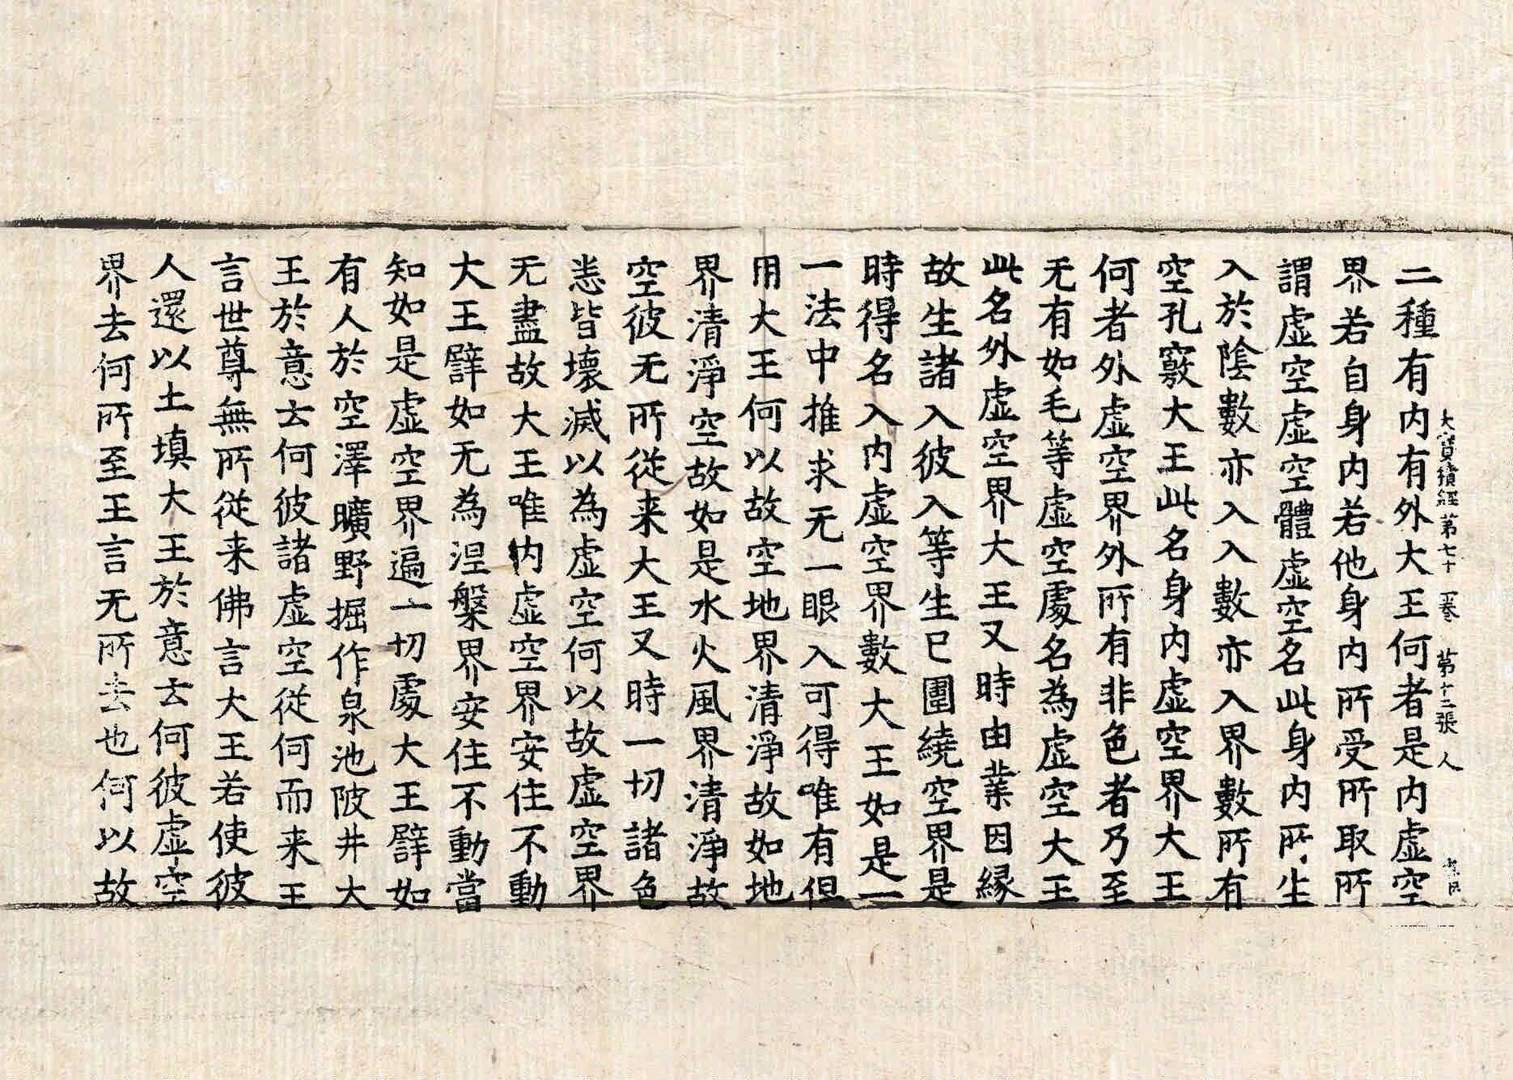 大寶積經第七十三卷 第十三張 人
二種有内有外大王何者是内虚空
界若自身内若他身内所受所取所
謂虚空虚空體虚空名此身内所生
入於陰數亦入入數亦入界數所有
空孔竅大王此名身内虚空界大王
何者外虚空界外所有非色者乃至
无有如毛等虚空處名為虚空大王
此名外虚空界大王又時由業因縁
故生諸入彼入等生已圍繞空界是
時得名入内虚空界數大王如是一
一法中推求无一眼入可得唯有但
用大王何以故空地界清淨故如地
界清淨空故如是水火風界清淨故
空彼无所從来大王又時一切諸色
悉皆壞滅以為虚空何以故虚空界
无盡故大王唯内虚空界安住不動
大王譬如无為涅槃界安住不動當
知如是虚空界遍一切處大王譬如
有人於空澤曠野掘作泉池陂井大
王於意云何彼諸虚空從何而来王
言世尊無所從来佛言大王若使彼
人還以土填大王於意云何彼虚空
界去何所至王言无所去也何以故